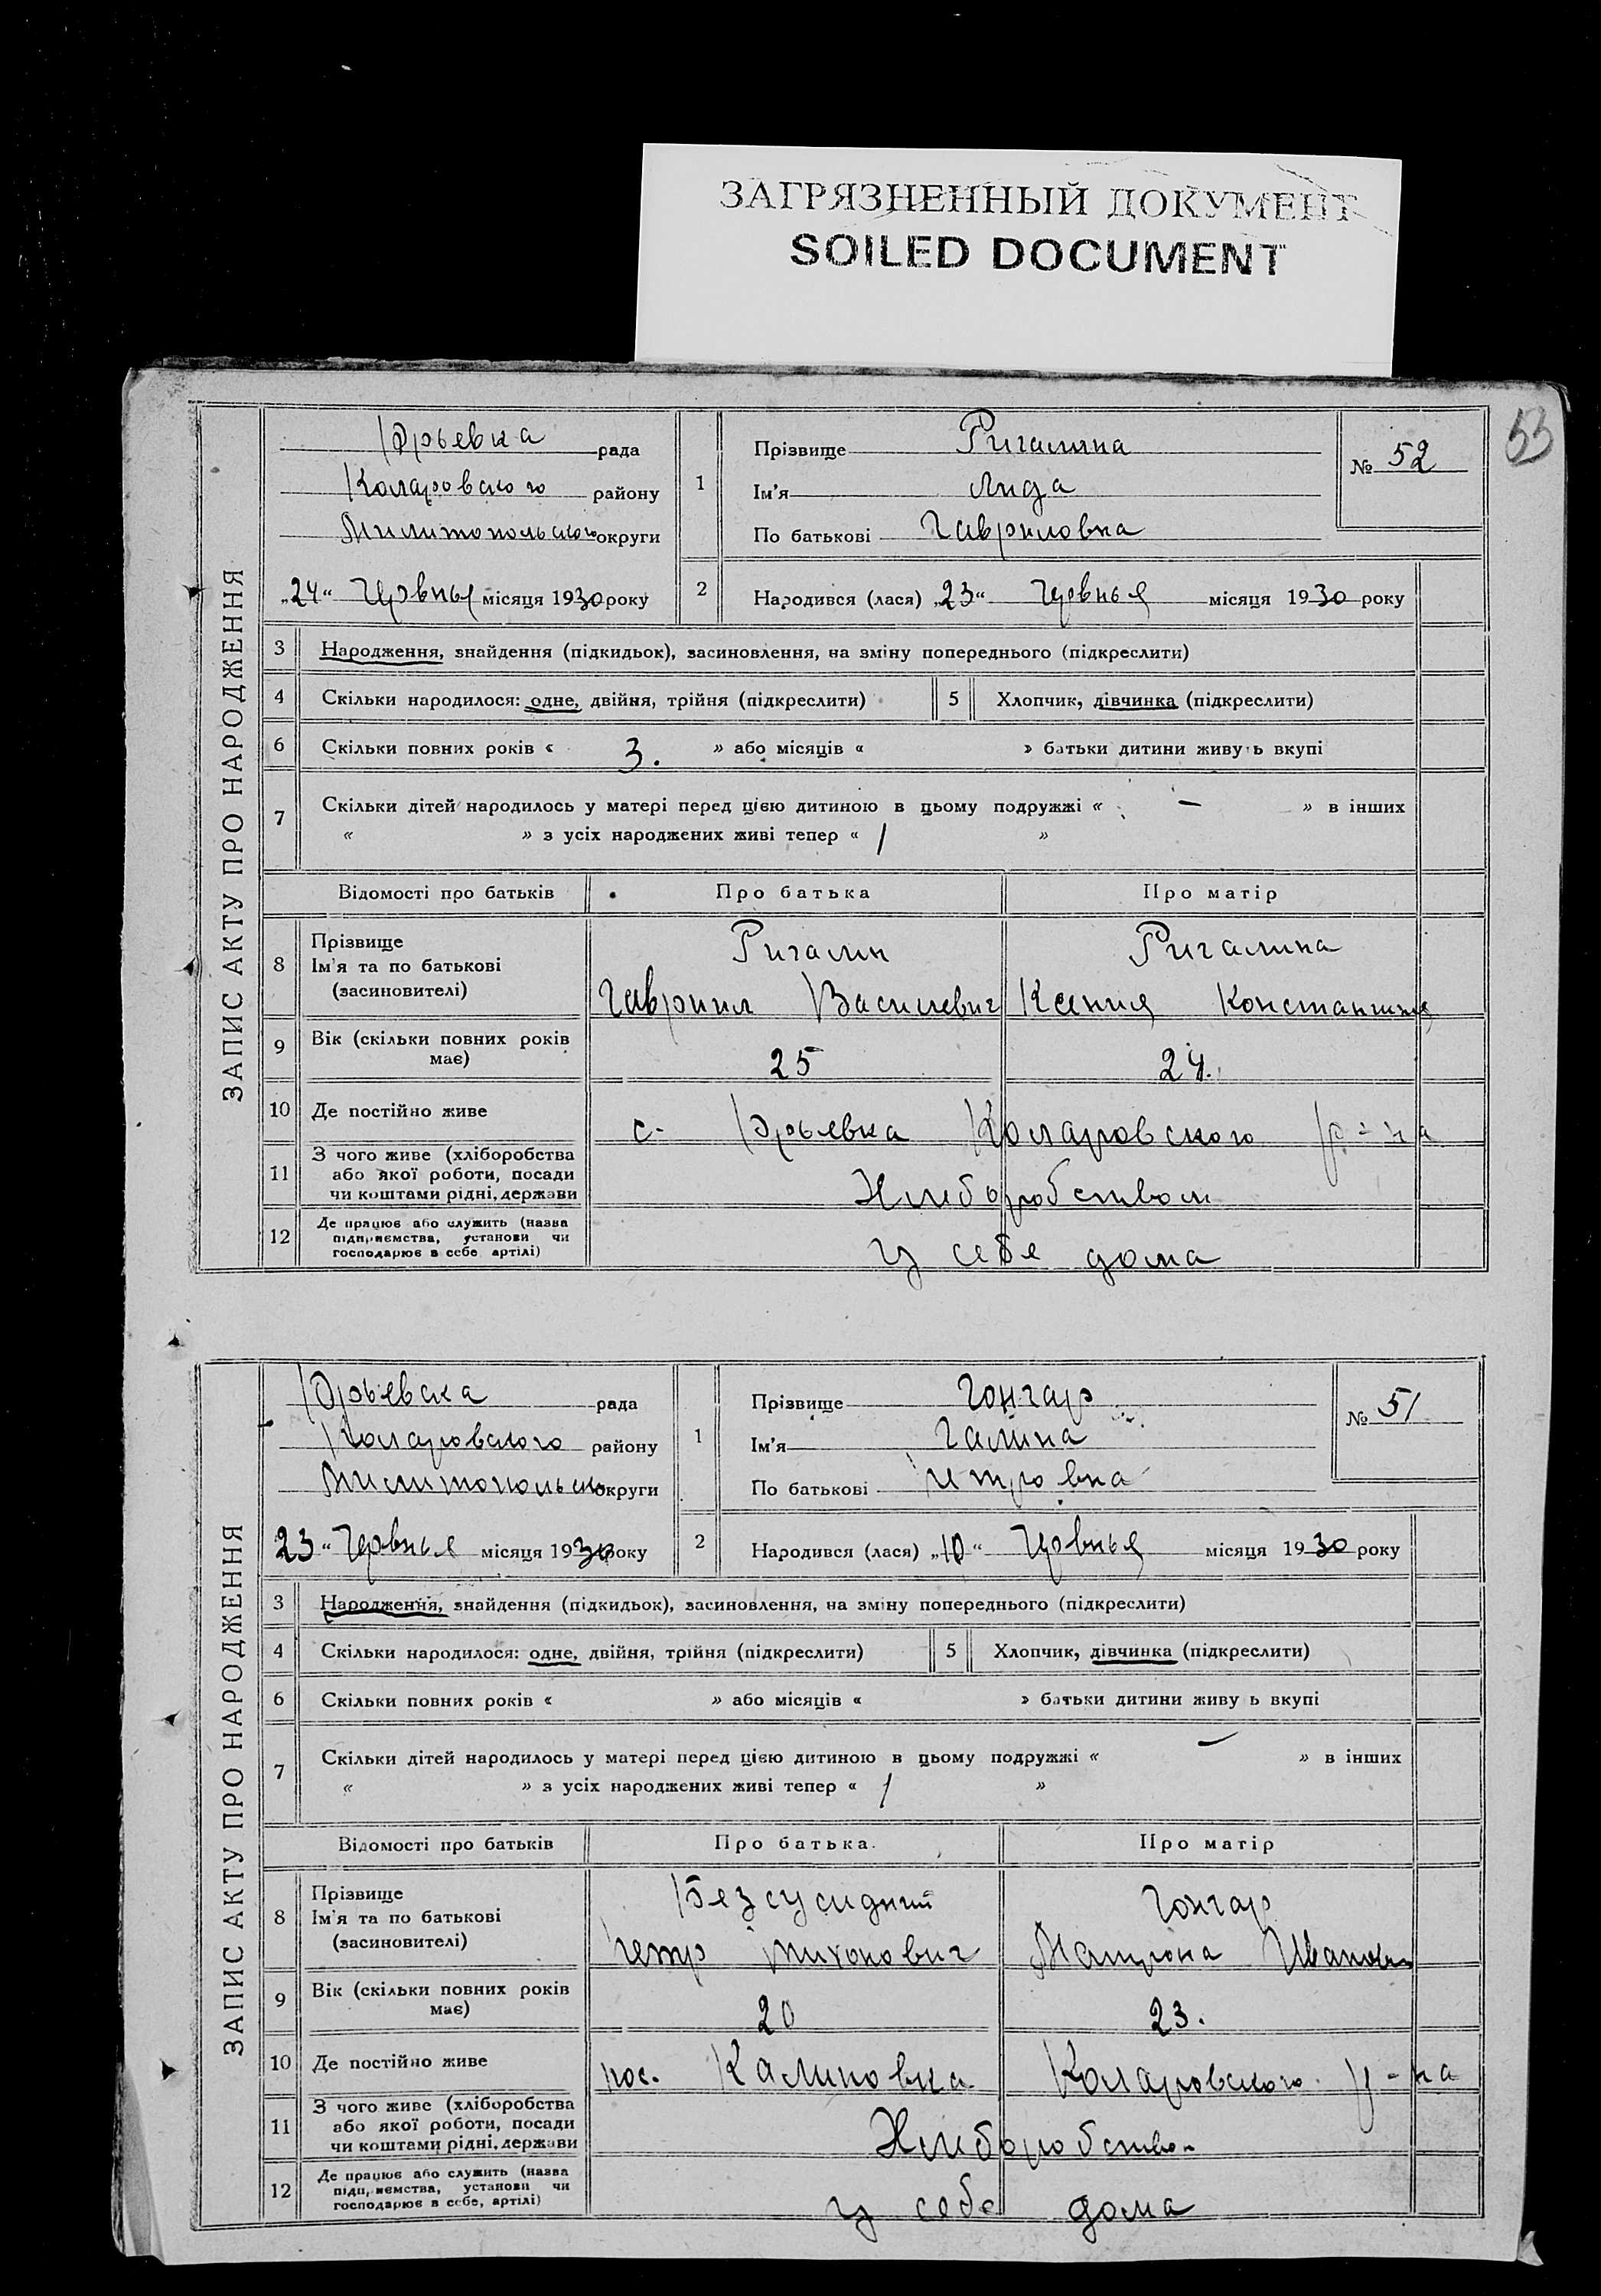 ЗАГРЯЗНЕННЫЙ ДОКУМЕНТ
SOILED DOCUMENT
53
ЗАПИС АКТУ ПРО НАРОДЖЕННЯ
Юрьевка рада
Коларовского району
Милитопольского округи
„24“ Червнья місяця 1930 року
1
Прізвище Ригалина
Ім'я Лида
По батькові Гавриловна
№ 52
2
Народився (лася) „23“ Червнья місяця 1930 року
3 Народження, знайдення (підкидьок), засиновлення, на зміну попереднього (підкреслити)
4 Скільки народилося: одне, двійня, трійня (підкреслити) 5 Хлопчик, дівчинка (підкреслити)
6 Скільки повних років « 3. » або місяців « » батьки дитини живуть вкупі
7 Скільки дітей народилось у матері перед цією дитиною в цьому подружжі « — » в інших
« » з усіх народжених живі тепер « 1 »
Відомості про батьків Про батька Про матір
8 Прізвище
Ім'я та по батькові
(засиновителі)
Ригалин Ригалина
Гавриил Василевич Ксения
9 Вік (скільки повних років
має)
25 24.
10 Де постійно живе с. Юрьевка Коларовского р-на
11 З чого живе (хліборобства
або якої роботи, посади
чи коштами рідні, держави
Хлиборобством
12 Де працює або служить (назва
підприємства, установи чи
господарює в себе артілі)
у себе дома
ЗАПИС АКТУ ПРО НАРОДЖЕННЯ
Юрьевска рада
Коларовского району
округи
23“ Червнья місяця 1930 року
1
Прізвище Гончар
Ім'я Галина
По батькові Петровна
№ 51
2
Народився (лася) „10“ Червнья місяця 1930 року
3 Народження, знайдення (підкидьок), засиновлення, на зміну попереднього (підкреслити)
4 Скільки народилося: одне, двійня, трійня (підкреслити) 5 Хлопчик, дівчинка (підкреслити)
6 Скільки повних років « » або місяців « » батьки дитини живу ь вкупі
7 Скільки дітей народилось у матері перед цією дитиною в цьому подружжі « — » в інших
« » з усіх народжених живі тепер « 1 »
Відомості про батьків Про батька. Про матір
8 Прізвище
Ім'я та по батькові
(засиновителі)
Безсусидний Гончар
Петр Тихонович Матрона
9 Вік (скільки повних років
має)
20 23.
10 Де постійно живе пос. Калиновка Коларовского р-на
11 З чого живе (хліборобства
або якої роботи, посади
чи коштами рідні, держави
Хлиборобство
12 Де працює або служить (назва
підприємства, установи чи
господарює в себе, артілі)
у себе дома